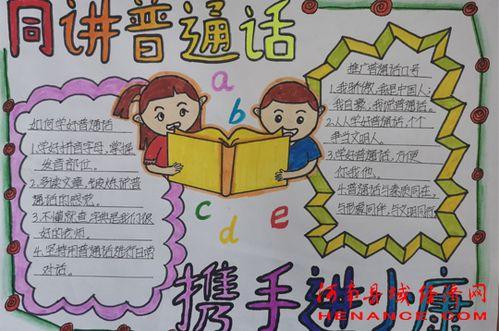 同讲普通话
a
b
c
d
e
如何学好普通话
1.学好拼音字母,掌握
发音部位。
2.多读文章,锻炼说普
通话的感觉。
3.不懂就查,字典是我们很
好的老师。
4.坚持用普通话进行日常
对话。
推广普通话口号
1.我骄傲,我是中国人;
我自豪,我说普通话。
2.人人学好普通话,个个
争当文明人。
3.学好普通话,方便
你我他。
4.普通话与素质同在,
与形象同伴,与文明同行
携手进小康
河南县域经济网
HENANCE.COM